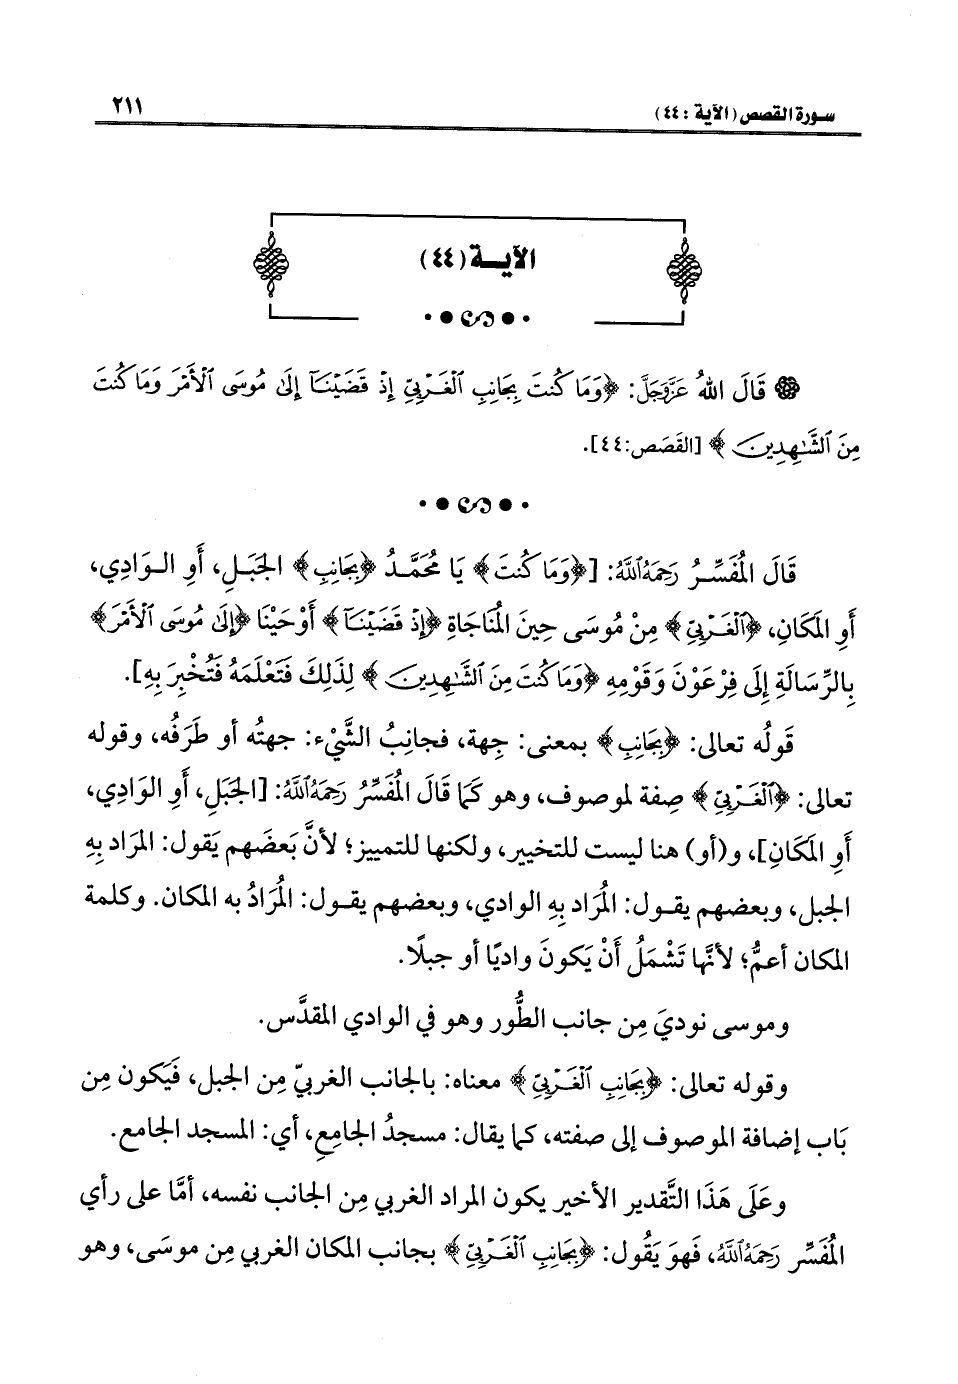 سورة القصص (الآية : ٤٤)
٢١١
الآيـــة (٤٤)
قَالَ اللهُ عَزَّوَجَلَّ: ﴿وَمَا كُنتَ بِجَانِبِ ٱلْغَرْبِيِّ إِذْ قَضَيْنَآ إِلَىٰ مُوسَى ٱلْأَمْرَ وَمَا كُنتَ
مِنَ ٱلشَّٰهِدِينَ﴾ [القَصَص:٤٤].
قَالَ المُفَسِّـرُ رَحِمَهُ ٱللَّهُ: [﴿وَمَا كُنتَ﴾ يَا مُحَمَّـدُ ﴿بِجَانِبِ﴾ الجَبَـلِ، أَوِ الـوَادِي،
أَوِ المَكَانِ، ﴿ٱلْغَرْبِيِّ﴾ مِنْ مُوسَى حِينَ المُنَاجَاةِ ﴿إِذْ قَضَيْنَآ﴾ أَوْحَيْنَا ﴿إِلَىٰ مُوسَى ٱلْأَمْرَ﴾
بِالرِّسَالَةِ إِلَى فِرْعَوْنَ وَقَوْمِهِ ﴿وَمَا كُنتَ مِنَ ٱلشَّٰهِدِينَ﴾ لِذَلِكَ فَتَعْلَمَهُ فَتُخْبِرَ بِهِ].
قَولُه تعالى: ﴿بِجَانِبِ﴾ بمعنى: جِهة، فجانِبُ الشَّيْء: جهتُه أو طَرَفُه، وقوله
تعالى: ﴿ٱلْغَرْبِيِّ﴾ صِفة لموصوف، وهو كَمَا قَالَ المُفَسِّرُ رَحِمَهُ ٱللَّهُ: [الجَبَلِ، أَوِ الوَادِي،
أَوِ المَكَانِ]، و(أو) هنا ليست للتخيير، ولكنها للتمييز؛ لأنَّ بَعضَهم يَقول: المرَاد بِهِ
الجبل، وبعضهم يقـول: المُرَاد بِهِ الوادي، وبعضهم يقـول: المُرَادُ به المكان. وكلمة
المكان أعمُّ؛ لأنَّها تَشْمَلُ أَنْ يَكونَ واديًا أو جبلًا.
وموسى نوديَ مِن جانب الطُّور وهو في الوادي المقدَّس.
وقوله تعالى: ﴿بِجَانِبِ ٱلْغَرْبِيِّ﴾ معناه: بالجانب الغربيّ مِن الجبل، فَيَكون مِن
بَاب إضافة الموصوف إلى صفته، كما يقال: مسجدُ الجامِعِ، أي: المسجد الجامع.
وعَلَى هَذَا التَّقدير الأخير يكون المراد الغربي مِن الجانب نفسه، أمَّا على رأي
المُفَسِّر رَحِمَهُ ٱللَّهُ، فَهوَ يَقُول: ﴿بِجَانِبِ ٱلْغَرْبِيِّ﴾ بجانب المكان الغربي مِن موسَى، وهو